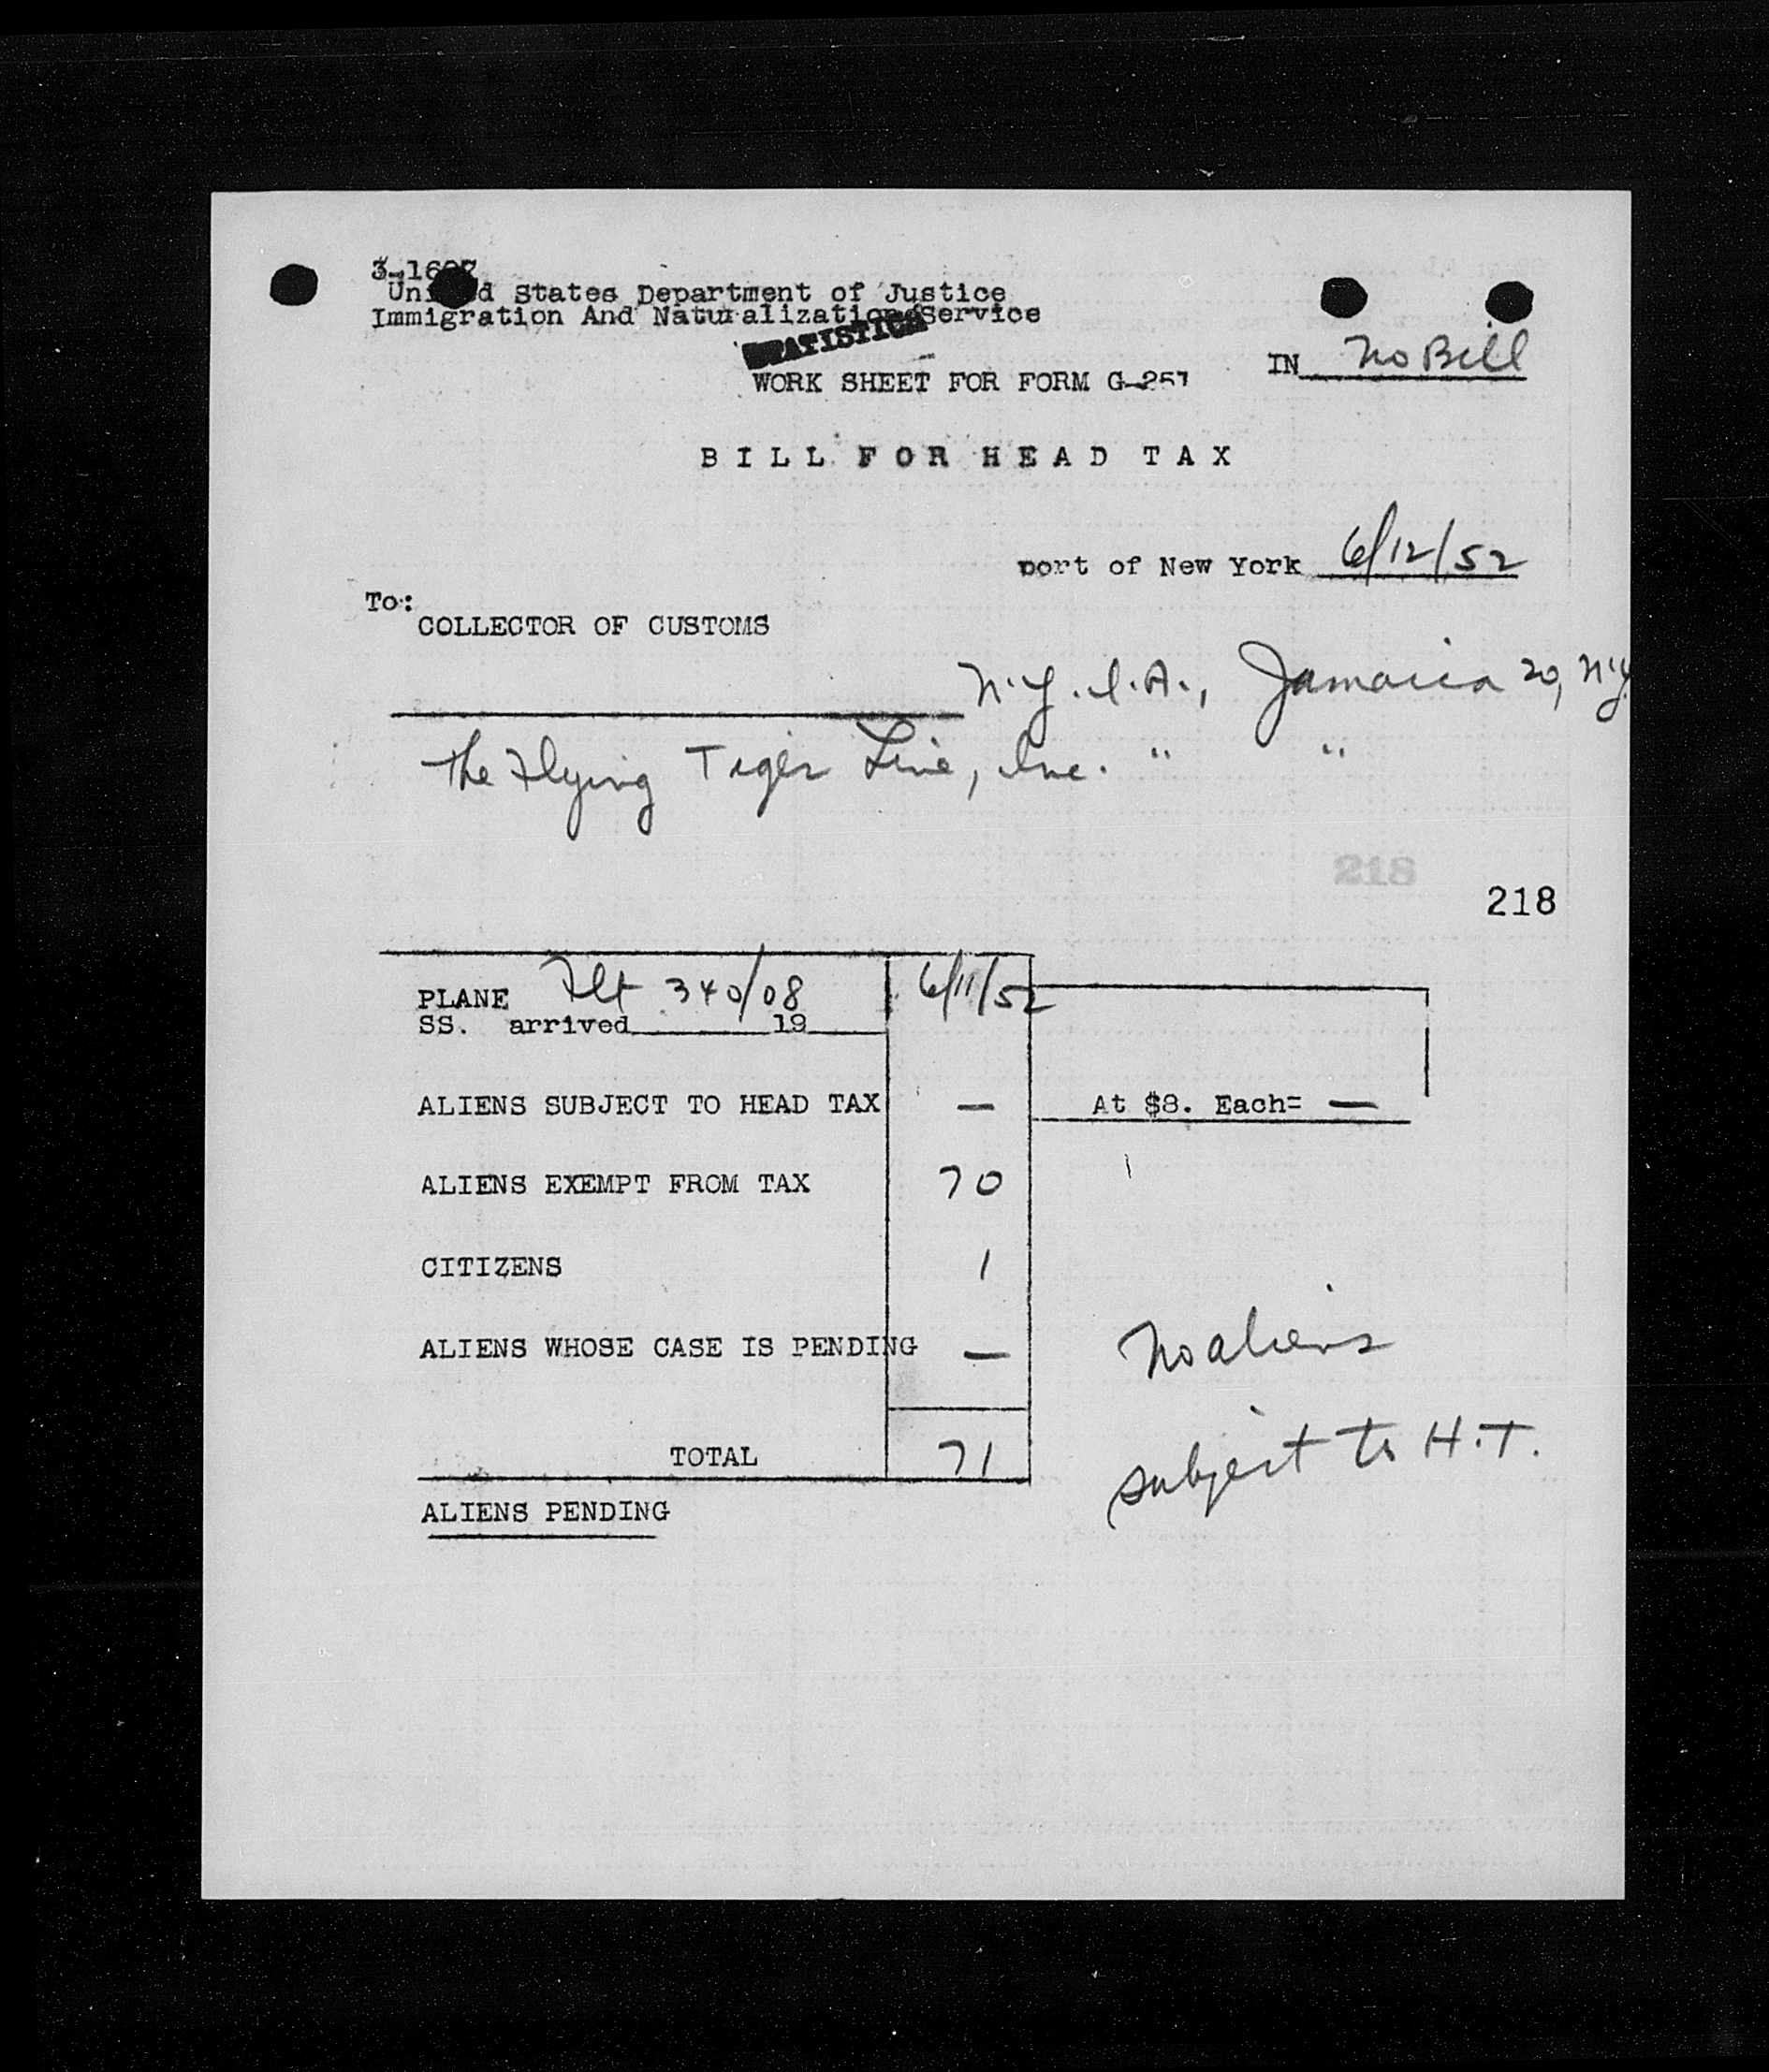 3-1607
United States Department of Justice
Immigration And Naturalization Service
STATISTICS
WORK SHEET FOR FORM G-257
IN No Bill
BILL FOR HEAD TAX
port of New York 6/12/52
To:
COLLECTOR OF CUSTOMS
N.Y.I.A., Jamaica 20, N.Y.
The Flying Tiger Line, Inc. " "
218
218
PLANE Flt 340/08 6/11/52
SS. arrived 19
ALIENS SUBJECT TO HEAD TAX — At $8. Each= —
ALIENS EXEMPT FROM TAX 70
CITIZENS 1
ALIENS WHOSE CASE IS PENDING —
No aliens
subject to H.T.
TOTAL 71
ALIENS PENDING